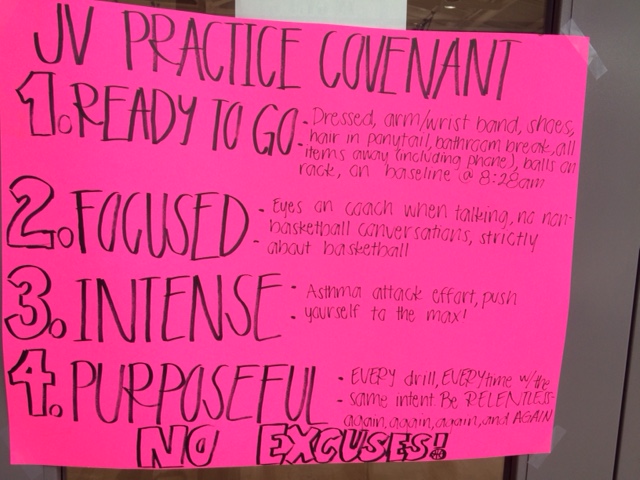 JV PRACTICE COVENANT
1. READY TO GO - Dressed, arm/wrist band, shoes,
- hair in ponytail, bathroom break, all
items away (including phone), balls on
rack, on baseline @ 8:28am
2. FOCUSED - Eyes on coach when talking, no non-
basketball conversations, strictly
- about basketball
3. INTENSE - Asthma attack effort, push
- yourself to the max!
4. PURPOSEFUL - EVERY drill, EVERY time w/the
- same intent. Be RELENTLESS-
again, again, again, and AGAIN
NO EXCUSES!